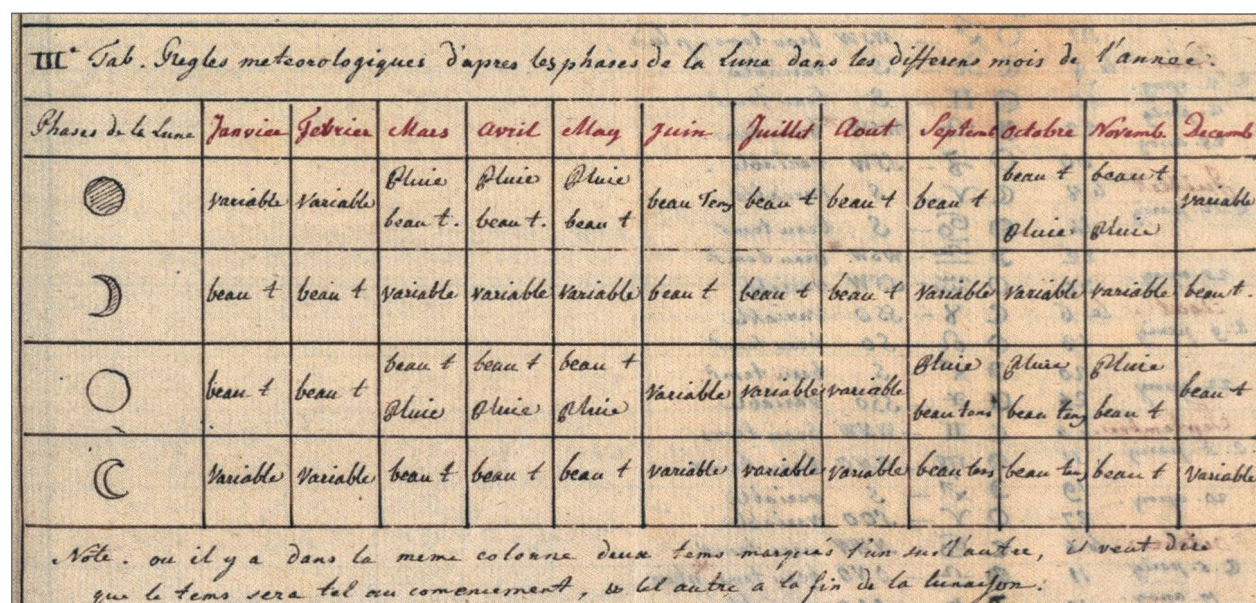 III.e Tab. Regles meteorologiques d'apres les phases de la Lune dans les differens mois de l'année.
Phases de la Lune Janvier Fevrier Mars Avril May Juin Juillet Aout Septemb Octobre Novemb. Decemb
Pluie Pluie Pluie beau t beau t
variable variable beau Tems beau t beau t beau t variable
beau t. beau t. beau t Pluie Pluie
beau t beau t variable variable variable beau t beau t beau t variable variable variable beau t.
beau t beau t beau t Pluie Pluie Pluie
beau t beau t variable variable variable beau t
Pluie Pluie Pluie beau tems beau tems beau t
variable variable beau t beau t beau t variable variable variable beau tems beau tems beau t variable
Note. ou il y a dans la meme colonne deux tems marqués l'un sur l'autre, veut dire
que le tems sera tel au comencement, & tel autre a la fin de la lunaison.